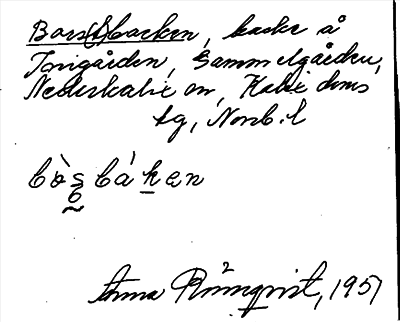 Bors(t)backen, backe å
Torigården, Gammelgården,
Nederkalix sn, Kalix doms
tg, Norrb. l
bòs báken
Anna Rönnqvist, 1951